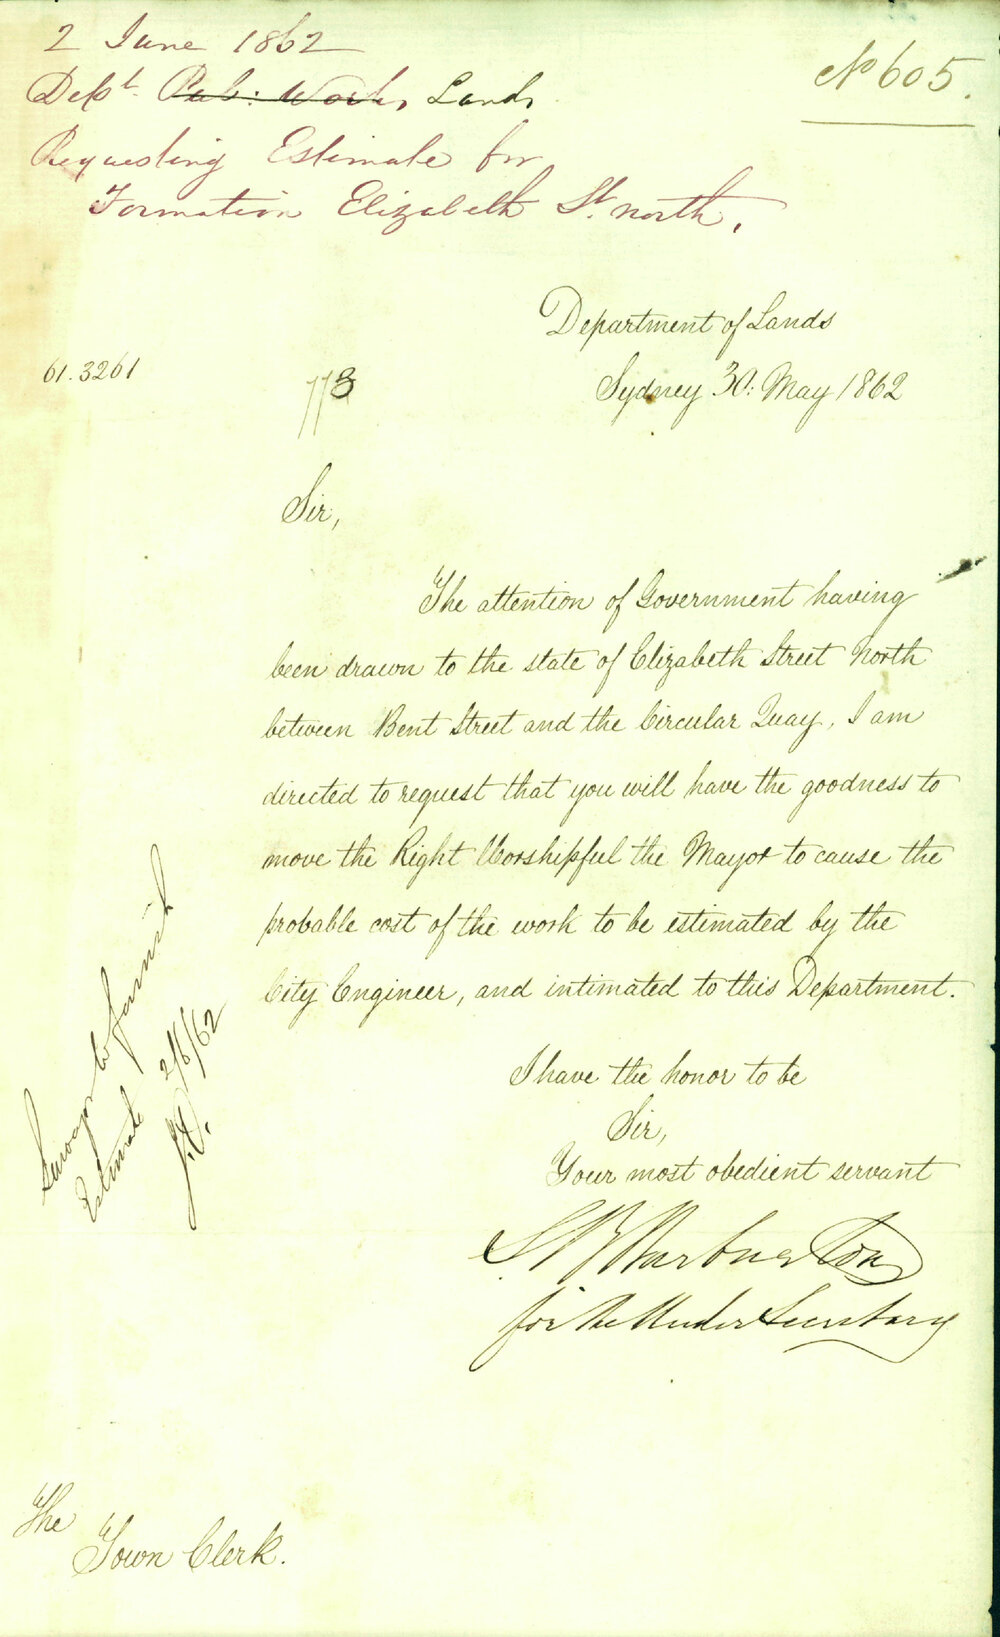 2 June 1862
Depᵗ Pub: Works Lands
Requesting Estimate for
Formation Elizabeth Sᵗ north.
No 605.
Department of Lands
61.3261
Sydney 30: May 1862
Sir,
The attention of Government having
been drawn to the state of Elizabeth Street North
between Bent Street and the Circular Quay, I am
directed to request that you will have the goodness to
move the Right Worshipful the Mayor to cause the
probable cost of the work to be estimated by the
City Engineer, and intimated to this Department.
I have the honor to be
Sir,
Your most obedient servant
Warburton
for the Under Secretary
Surveyor to furnish
Estimate 2/6/62
The
Town Clerk.